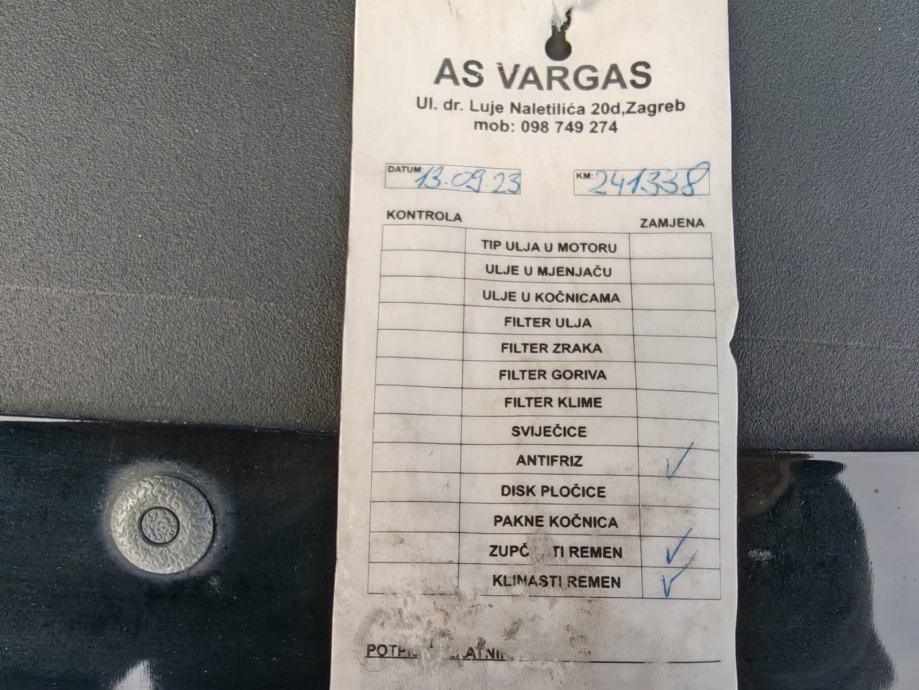 AS VARGAS
Ul. dr. Luje Naletilića 20d,Zagreb
mob: 098 749 274
DATUM: 13.09.23 KM: 241338
KONTROLA ZAMJENA
TIP ULJA U MOTORU
ULJE U MJENJAČU
ULJE U KOČNICAMA
FILTER ULJA
FILTER ZRAKA
FILTER GORIVA
FILTER KLIME
SVIJEĆICE
ANTIFRIZ ✓
DISK PLOČICE
PAKNE KOČNICA
REMEN ✓
KLINASTI REMEN ✓